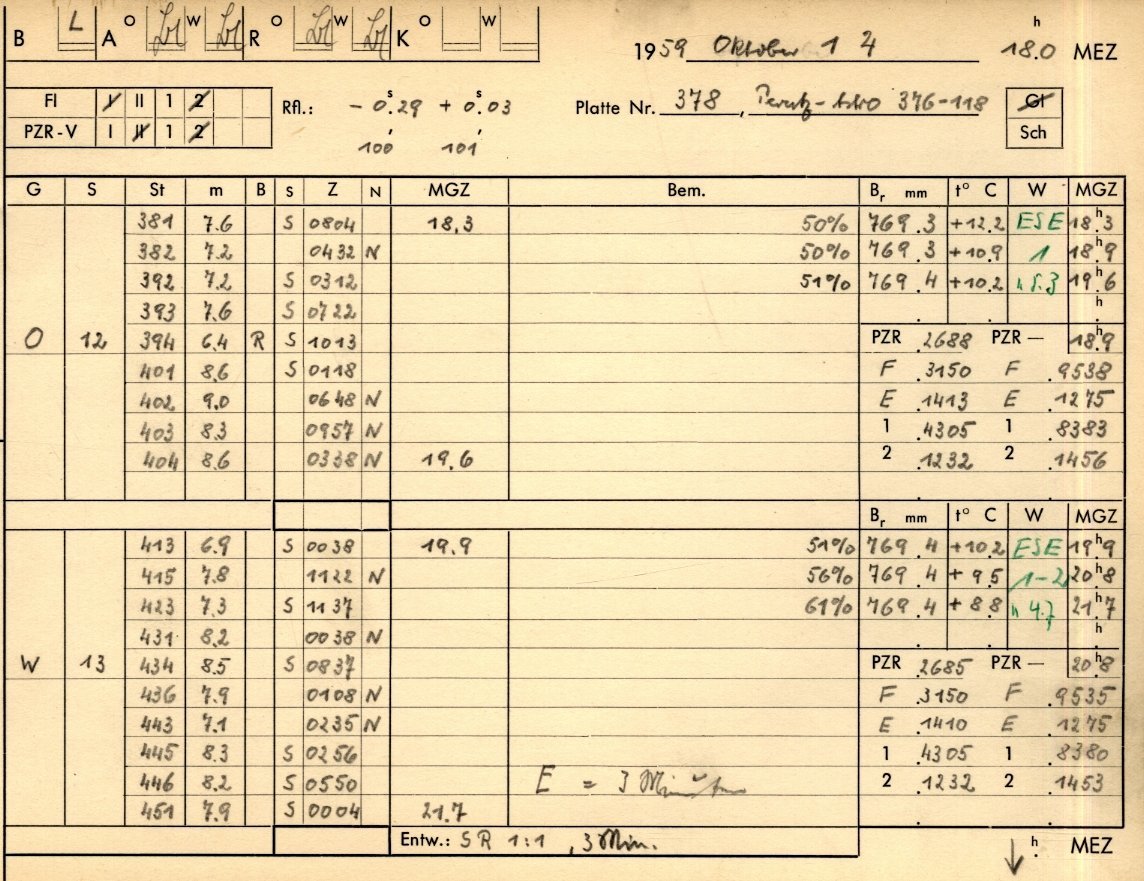 B L A O W R O W K O W
1959 Oktober 14 18.0 h MEZ
FI I II 1 2
PZR-V I II 1 2
Rfl.: - 0.s29 + 0.s03
100 101
Platte Nr. 378, 376-118
GI
Sch
G S St m B S Z N MGZ Bem. Br mm t° C W MGZ
381 7.6 S 0804 18.3 50% 769.3 +12.2 ESE 18.h3
382 7.2 0432 N 50% 769.3 +10.9 1 18.h9
392 7.2 S 0312 51% 769.4 +10.2 19.h6
393 7.6 S 0722 h
O 12 394 6.4 R S 1013 PZR .2688 PZR — 18.h9
401 8.6 S 0118 F .3150 F .9538
402 9.0 0648 N E .1413 E .1275
403 8.3 0957 N 1 .4305 1 .8383
404 8.6 0338 N 19.6 2 .1232 2 .1456
Br mm t° C W MGZ
413 6.9 S 0038 19.9 51% 769.4 +10.2 ESE 19.h9
415 7.8 1122 N 56% 769.4 + 9.5 1-2 20.h8
423 7.3 S 1137 61% 769.4 + 8.8 4.7 21.h7
431 8.2 0038 N h
W 13 434 8.5 S 0837 PZR .2685 PZR — 20.h8
436 7.9 0108 N F .3150 F .9535
443 7.1 0235 N E .1410 E .1275
445 8.3 S 0256 1 .4305 1 .8380
446 8.2 S 0550 E = 3 Minuten 2 .1232 2 .1453
451 7.9 S 0004 21.7
Entw.: SR 1:1, 3 Min. h MEZ